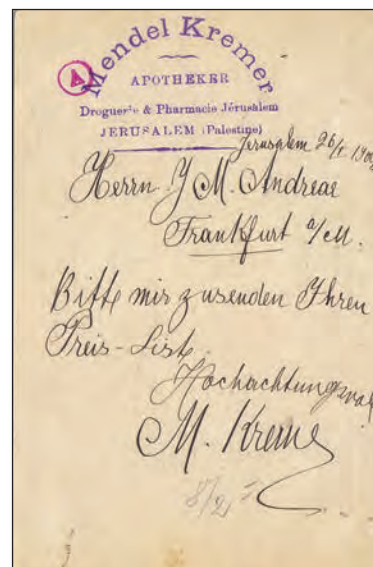 A
Mendel Kremer
APOTHEKER
Droguerie & Pharmacie Jérusalem
JERUSALEM (Palestine)
Jerusalem 26/I
Herrn J M. Andreae
Frankfurt a/M.
Bitte mir zusenden Ihren
Preis-List.
Hochachtungsvol
M. Kremer
8/2